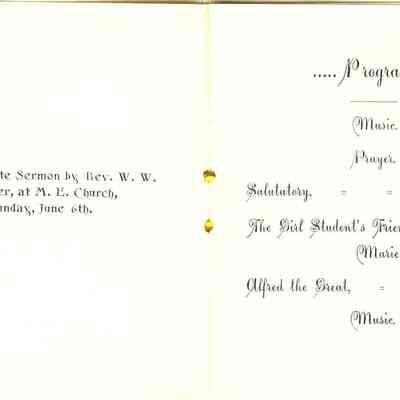 te Sermon by Rev. W. W.
er, at M. E. Church,
unday, June 6th.
..... Progra
Music.
Prayer.
Salutatory, = =
The Girl Student's Frien
Marie
Alfred the Great, =
Music.